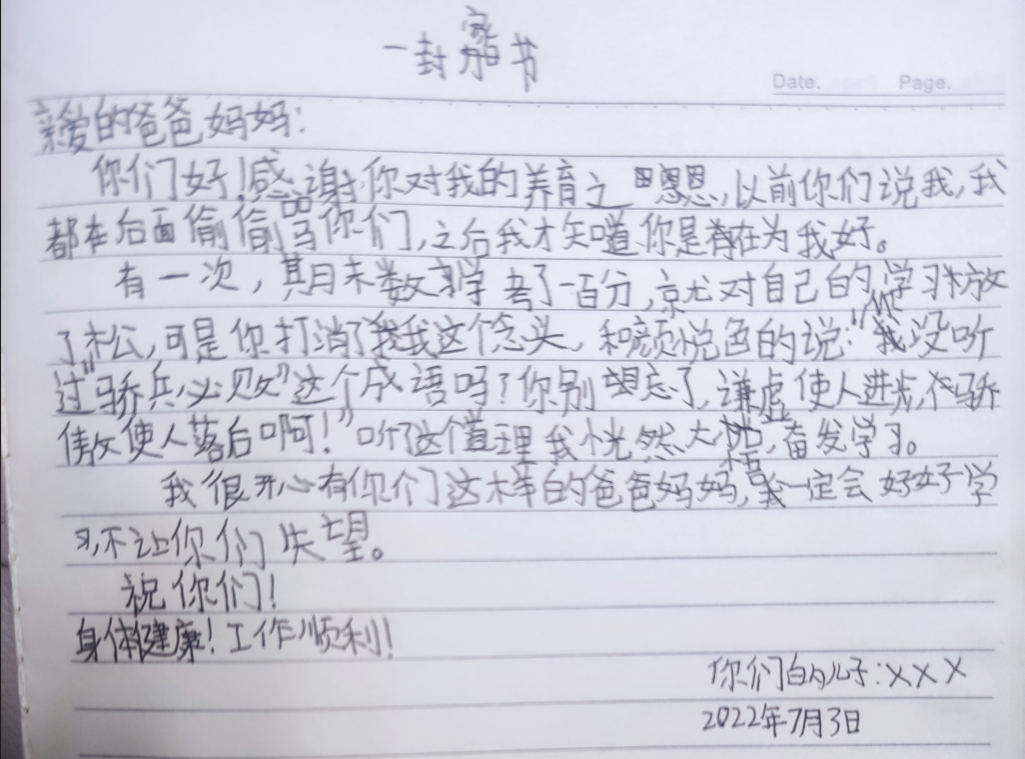 一封家书
Date. Page.
亲爱的爸爸妈妈:
你们好!感谢你对我的养育之恩,以前你们说我,我
都在后面偷偷骂你们,之后我才知道你是在为我好。
有一次,期月末数学考了一百分,京尤对自己的学习放
了松,可是你打消了我这个念头,和颜悦色的说:"我没听
过"骄兵必败"这个成语吗?你别忘了,谦虚使人进步,骄
傲使人落后啊!"听了这个道理我恍然大悟,奋发学习。
我很开心有你们这样的爸爸妈妈,我一定会好好学
习,不让你们失望。
祝你们!
身体健康!工作顺利!
你们的儿子:XXX
2022年7月3日